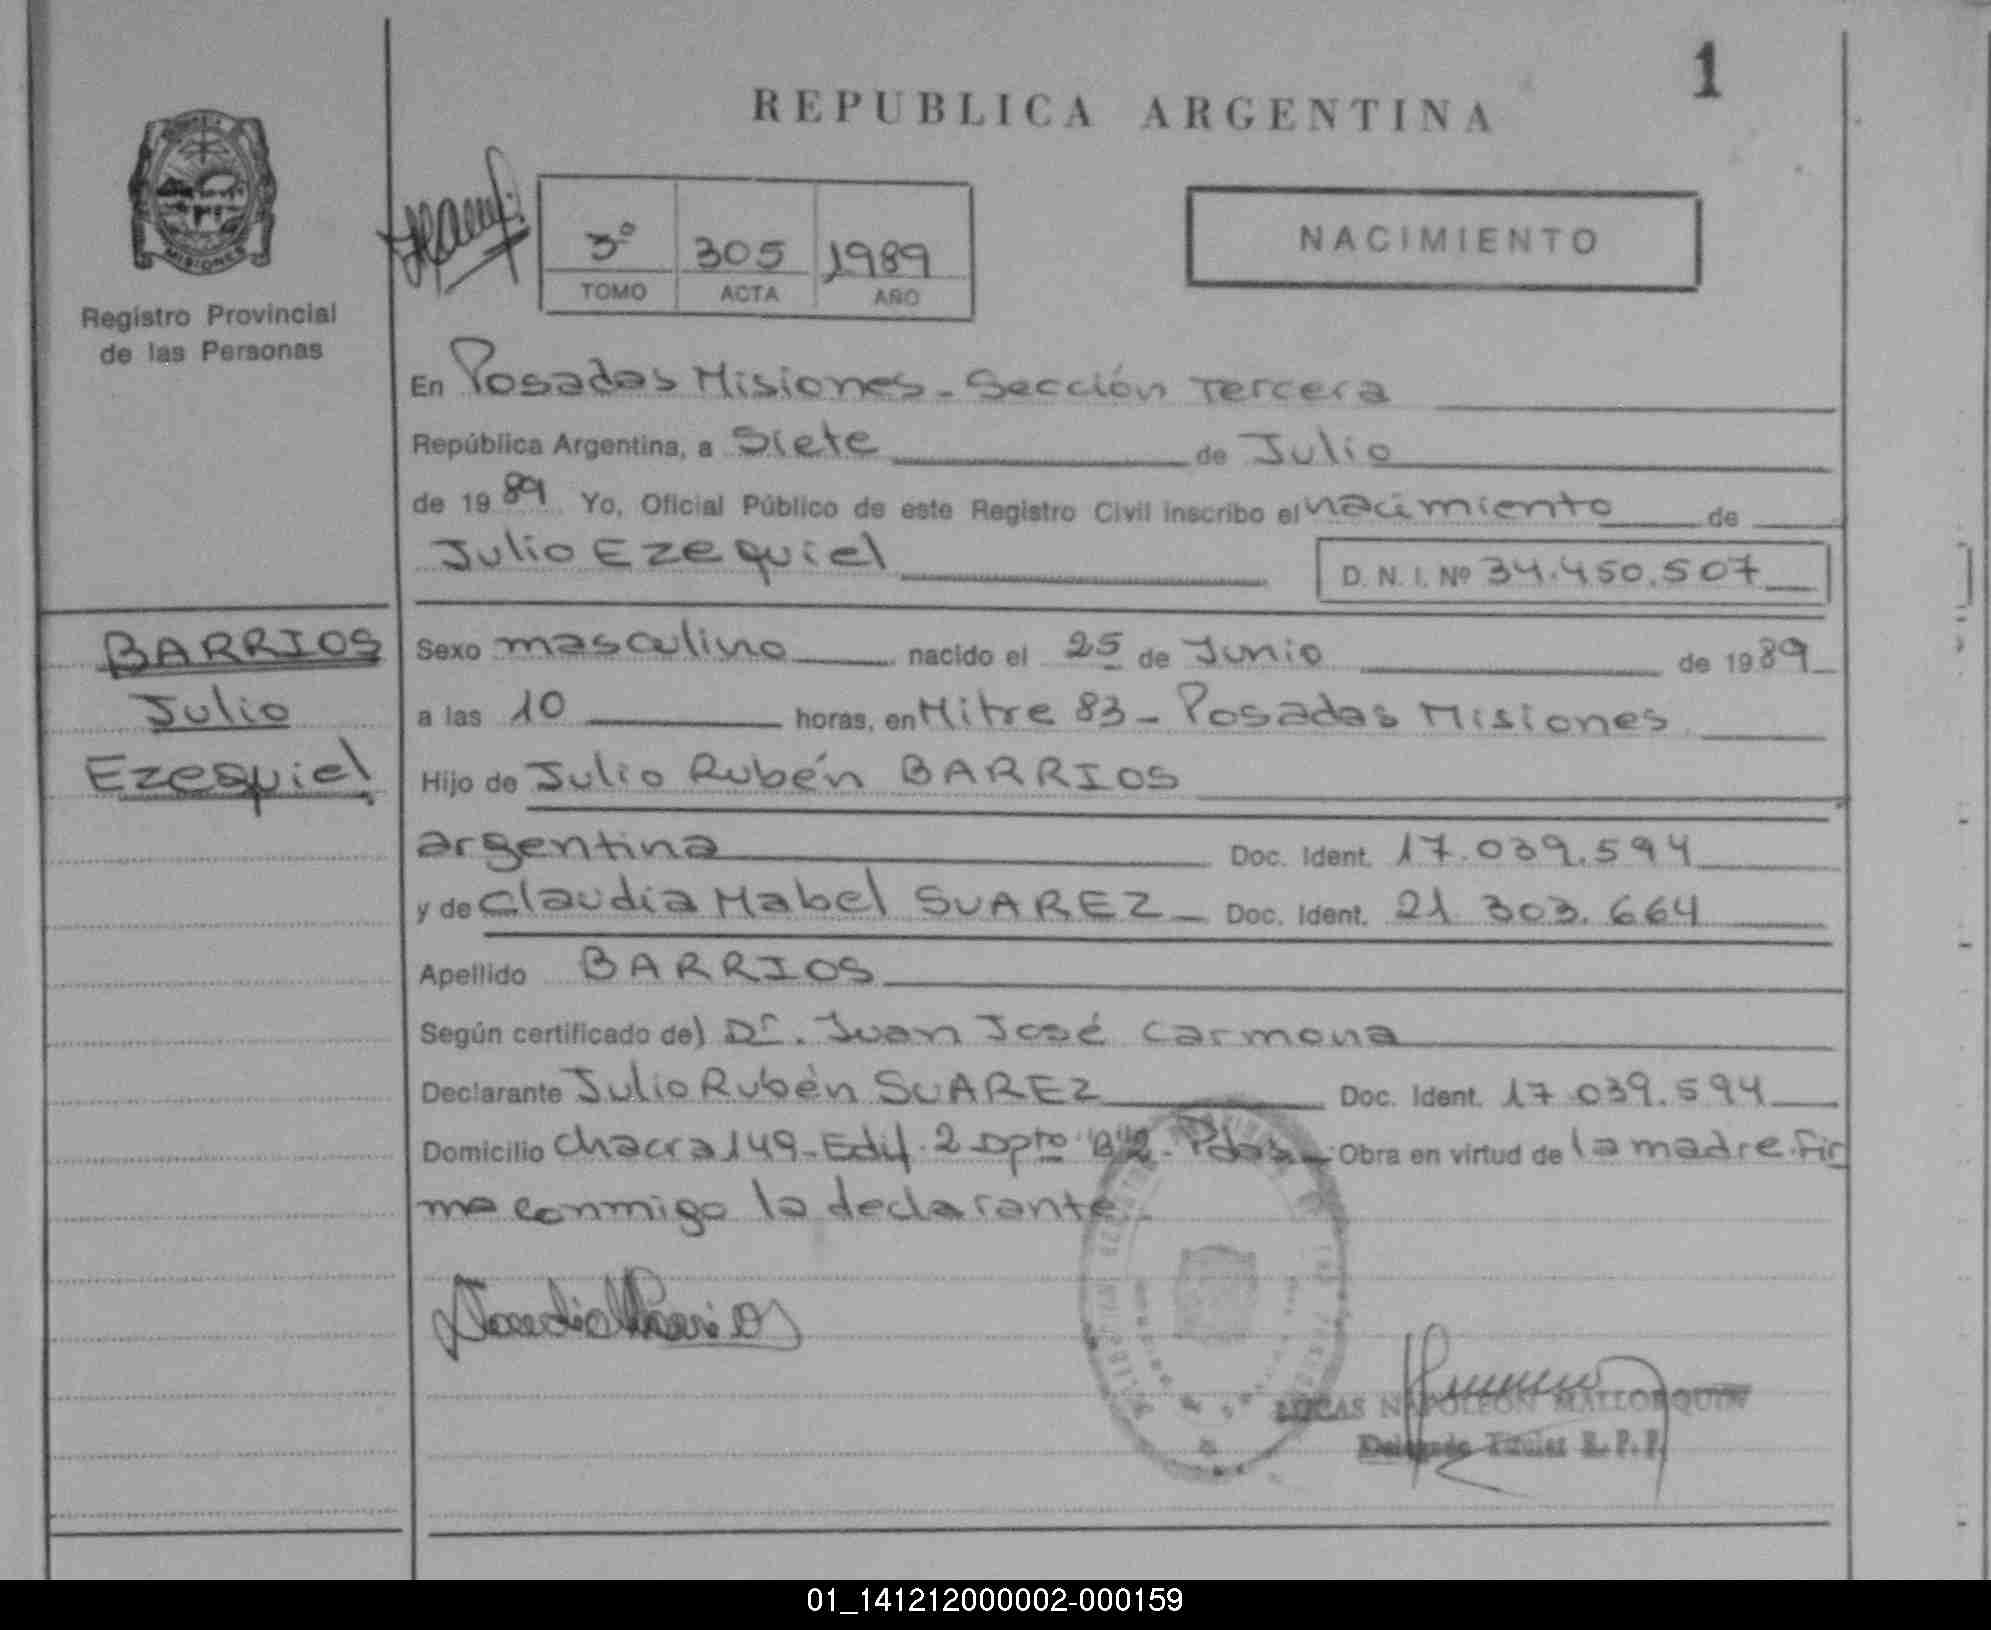 1
REPUBLICA ARGENTINA
MISIONES
Registro Provincial
de las Personas
3º 305 1989
TOMO ACTA AÑO
NACIMIENTO
En Posadas Misiones - Sección Tercera
República Argentina, a Siete de Julio
de 1989 Yo, Oficial Público de este Registro Civil inscribo el nacimiento de
Julio Ezequiel D. N. I. Nº 34.450.507
BARRIOS
Julio
Ezequiel
Sexo masculino nacido el 25 de Junio de 1989
a las 10 horas, en Mitre 83 - Posadas Misiones
Hijo de Julio Rubén BARRIOS
argentina Doc. Ident. 17.039.594
y de Claudia Mabel SUAREZ - Doc. Ident. 21 303.664
Apellido BARRIOS
Según certificado del Dr. Juan José Carmona
Declarante Julio Rubén SUAREZ Doc. Ident. 17 039.594
Domicilio Chacra 149 - Edif. 2 Dpto "B" 2 - Pdas - Obra en virtud de la madre. Fir
ma conmigo la declarante.
LUCAS NAPOLEON MALLORQUIN
Delegado Titular R. P. P.
01_141212000002-000159